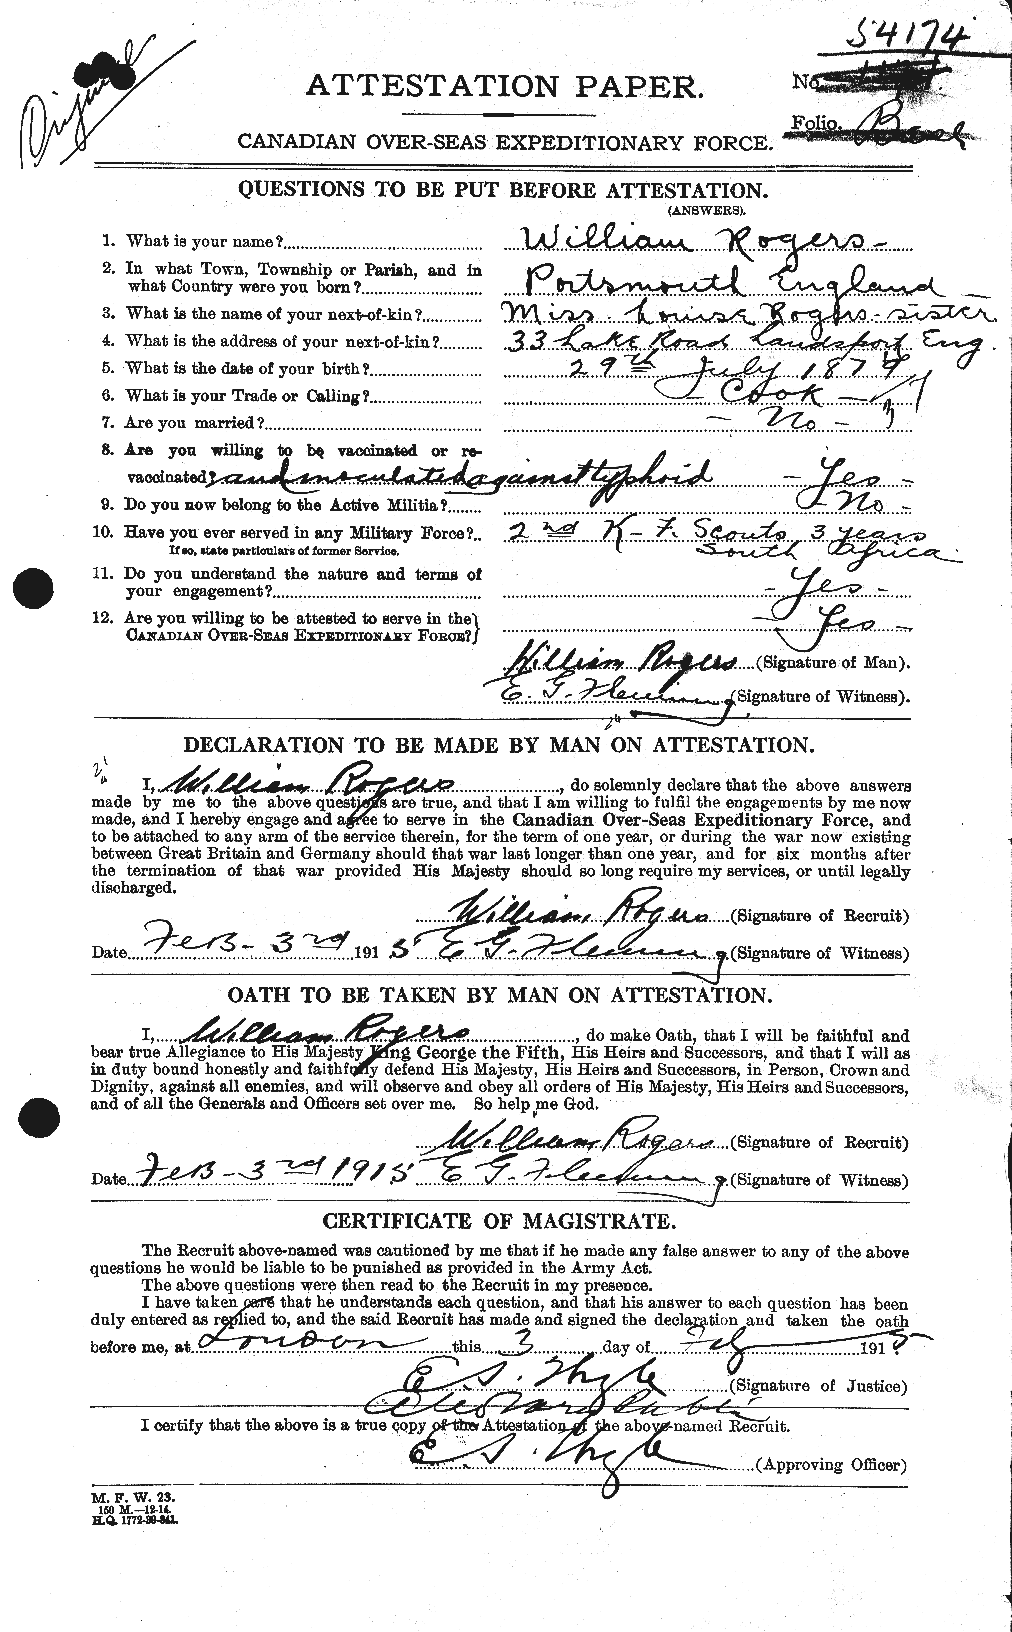 Original
54174
ATTESTATION PAPER.
No.
Folio.
CANADIAN OVER-SEAS EXPEDITIONARY FORCE.
QUESTIONS TO BE PUT BEFORE ATTESTATION.
(ANSWERS).
1. What is your name? William Rogers -
2. In what Town, Township or Parish, and in
what Country were you born? Portsmouth England -
3. What is the name of your next-of-kin? Miss. Louise Rogers - sister
4. What is the address of your next-of-kin? 33 Lake Road Landsport Eng.
5. What is the date of your birth? 29th July 1879
6. What is your Trade or Calling? - Cook -
7. Are you married? - No -
8. Are you willing to be vaccinated or re-
vaccinated? and inoculated against typhoid - Yes -
9. Do you now belong to the Active Militia? - No -
10. Have you ever served in any Military Force? 2nd K - F. Scouts 3 years
If so, state particulars of former Service. South Africa.
11. Do you understand the nature and terms of
your engagement? - Yes -
12. Are you willing to be attested to serve in the
CANADIAN OVER-SEAS EXPEDITIONARY FORCE? - Yes -
William Rogers (Signature of Man).
E. G. Fleming (Signature of Witness).
DECLARATION TO BE MADE BY MAN ON ATTESTATION.
I, William Rogers, do solemnly declare that the above answers
made by me to the above questions are true, and that I am willing to fulfil the engagements by me now
made, and I hereby engage and agree to serve in the Canadian Over-Seas Expeditionary Force, and
to be attached to any arm of the service therein, for the term of one year, or during the war now existing
between Great Britain and Germany should that war last longer than one year, and for six months after
the termination of that war provided His Majesty should so long require my services, or until legally
discharged.
William Rogers (Signature of Recruit)
Date Feb - 3rd 1915 E G. Fleming (Signature of Witness)
OATH TO BE TAKEN BY MAN ON ATTESTATION.
I, William Rogers, do make Oath, that I will be faithful and
bear true Allegiance to His Majesty King George the Fifth, His Heirs and Successors, and that I will as
in duty bound honestly and faithfully defend His Majesty, His Heirs and Successors, in Person, Crown and
Dignity, against all enemies, and will observe and obey all orders of His Majesty, His Heirs and Successors,
and of all the Generals and Officers set over me. So help me God.
William Rogers (Signature of Recruit)
Date Feb - 3rd 1915 E G. Fleming (Signature of Witness)
CERTIFICATE OF MAGISTRATE.
The Recruit above-named was cautioned by me that if he made any false answer to any of the above
questions he would be liable to be punished as provided in the Army Act.
The above questions were then read to the Recruit in my presence.
I have taken care that he understands each question, and that his answer to each question has been
duly entered as replied to, and the said Recruit has made and signed the declaration and taken the oath
before me, at London this 3 day of Feby 1915
E. S. (Signature of Justice)
I certify that the above is a true copy of the Attestation of the above-named Recruit.
E S. (Approving Officer)
M. F. W. 23.
150 M.—12-14.
H.Q. 1772-39-841.